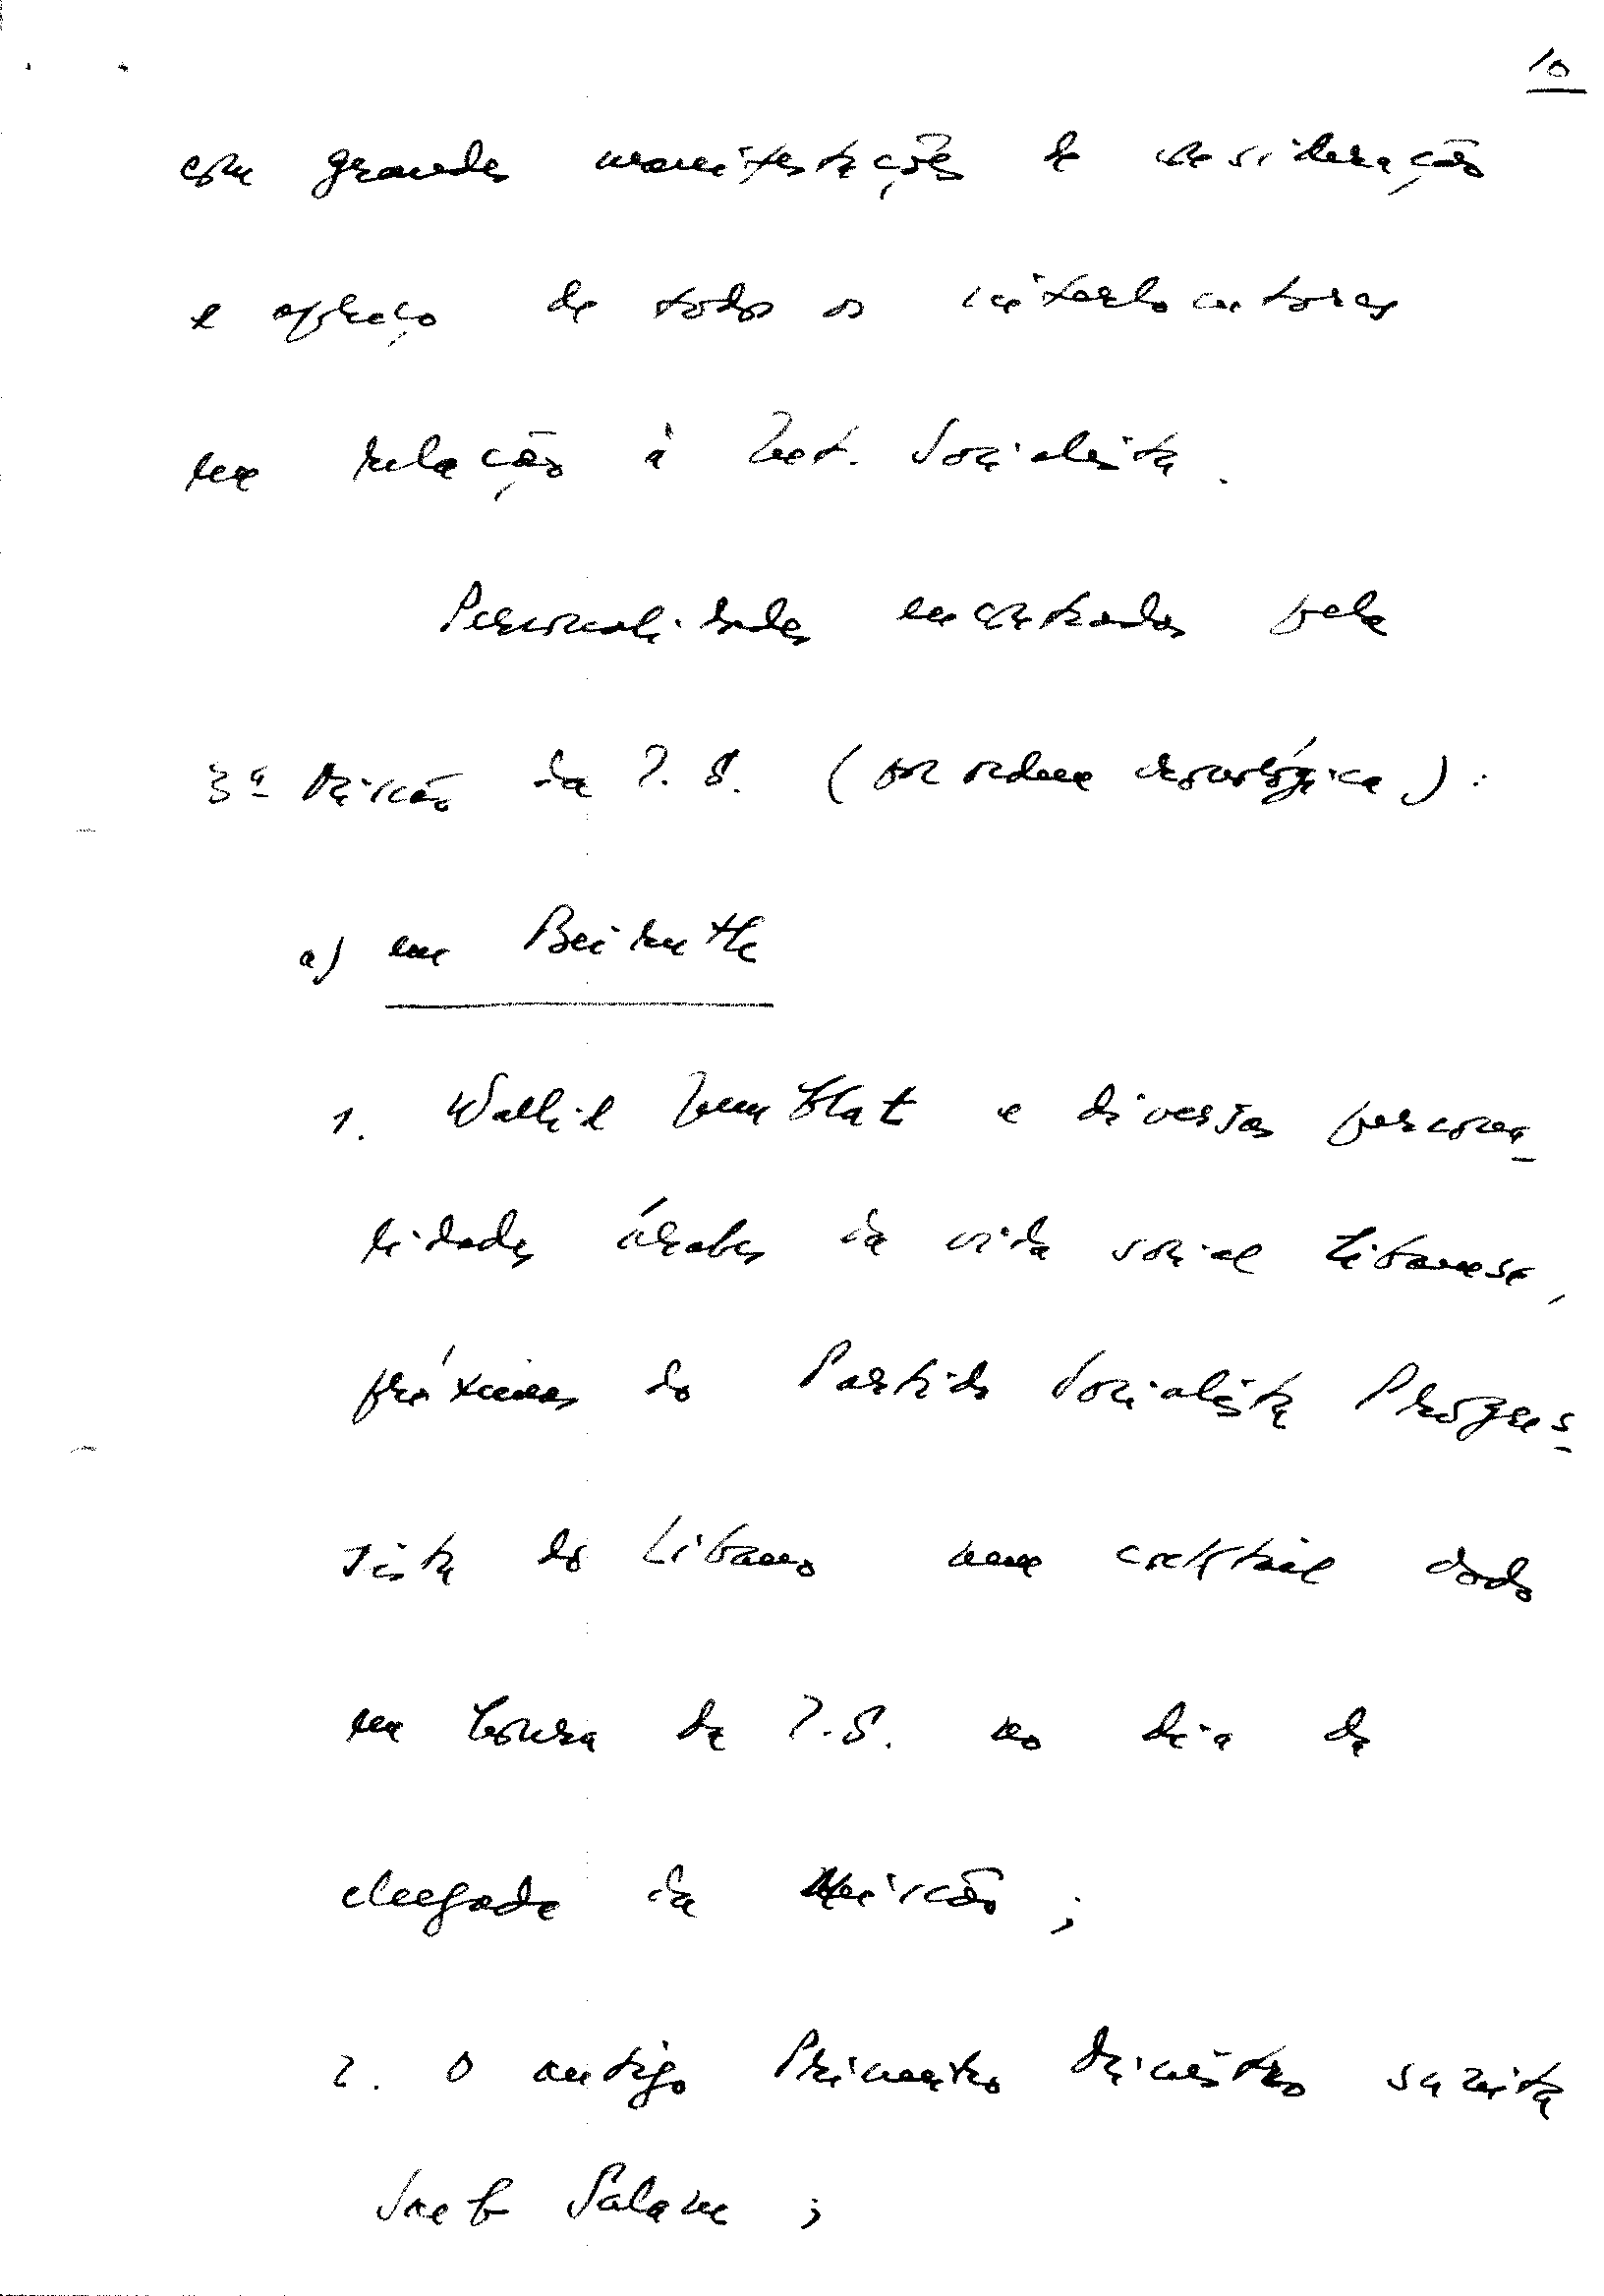 10
com grandes manifestações de consideração
e apreço de todos os interlocutores
em relação à Int. Socialista.
Personalidades encontradas pela
3ª Missão da I.S. (por ordem cronológica):
a) em Beiruth
1. Wallid Jumblat e diversas persona-
lidades árabes da vida social libanesa,
próximas do Partido Socialista Progres-
sista do Libano num cocktail dado
em honra da I.S. no dia da
chegada da Missão;
2. O antigo Primeiro Ministro sunita
Saeb Salam;